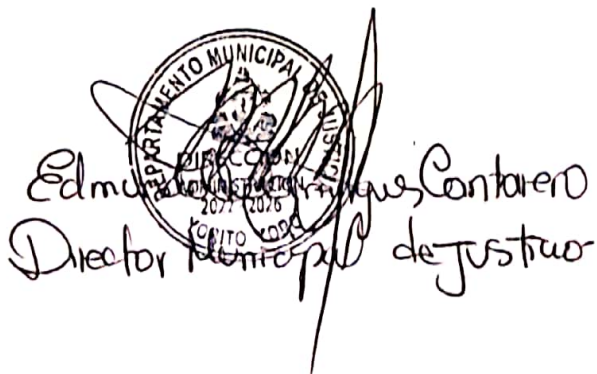 DEPARTAMENTO MUNICIPAL DE JUSTICIA
DIRECCION
ADMINISTRACION
2022 - 2026
YORITO YORO
Contarero
Director Municipal de Justicia